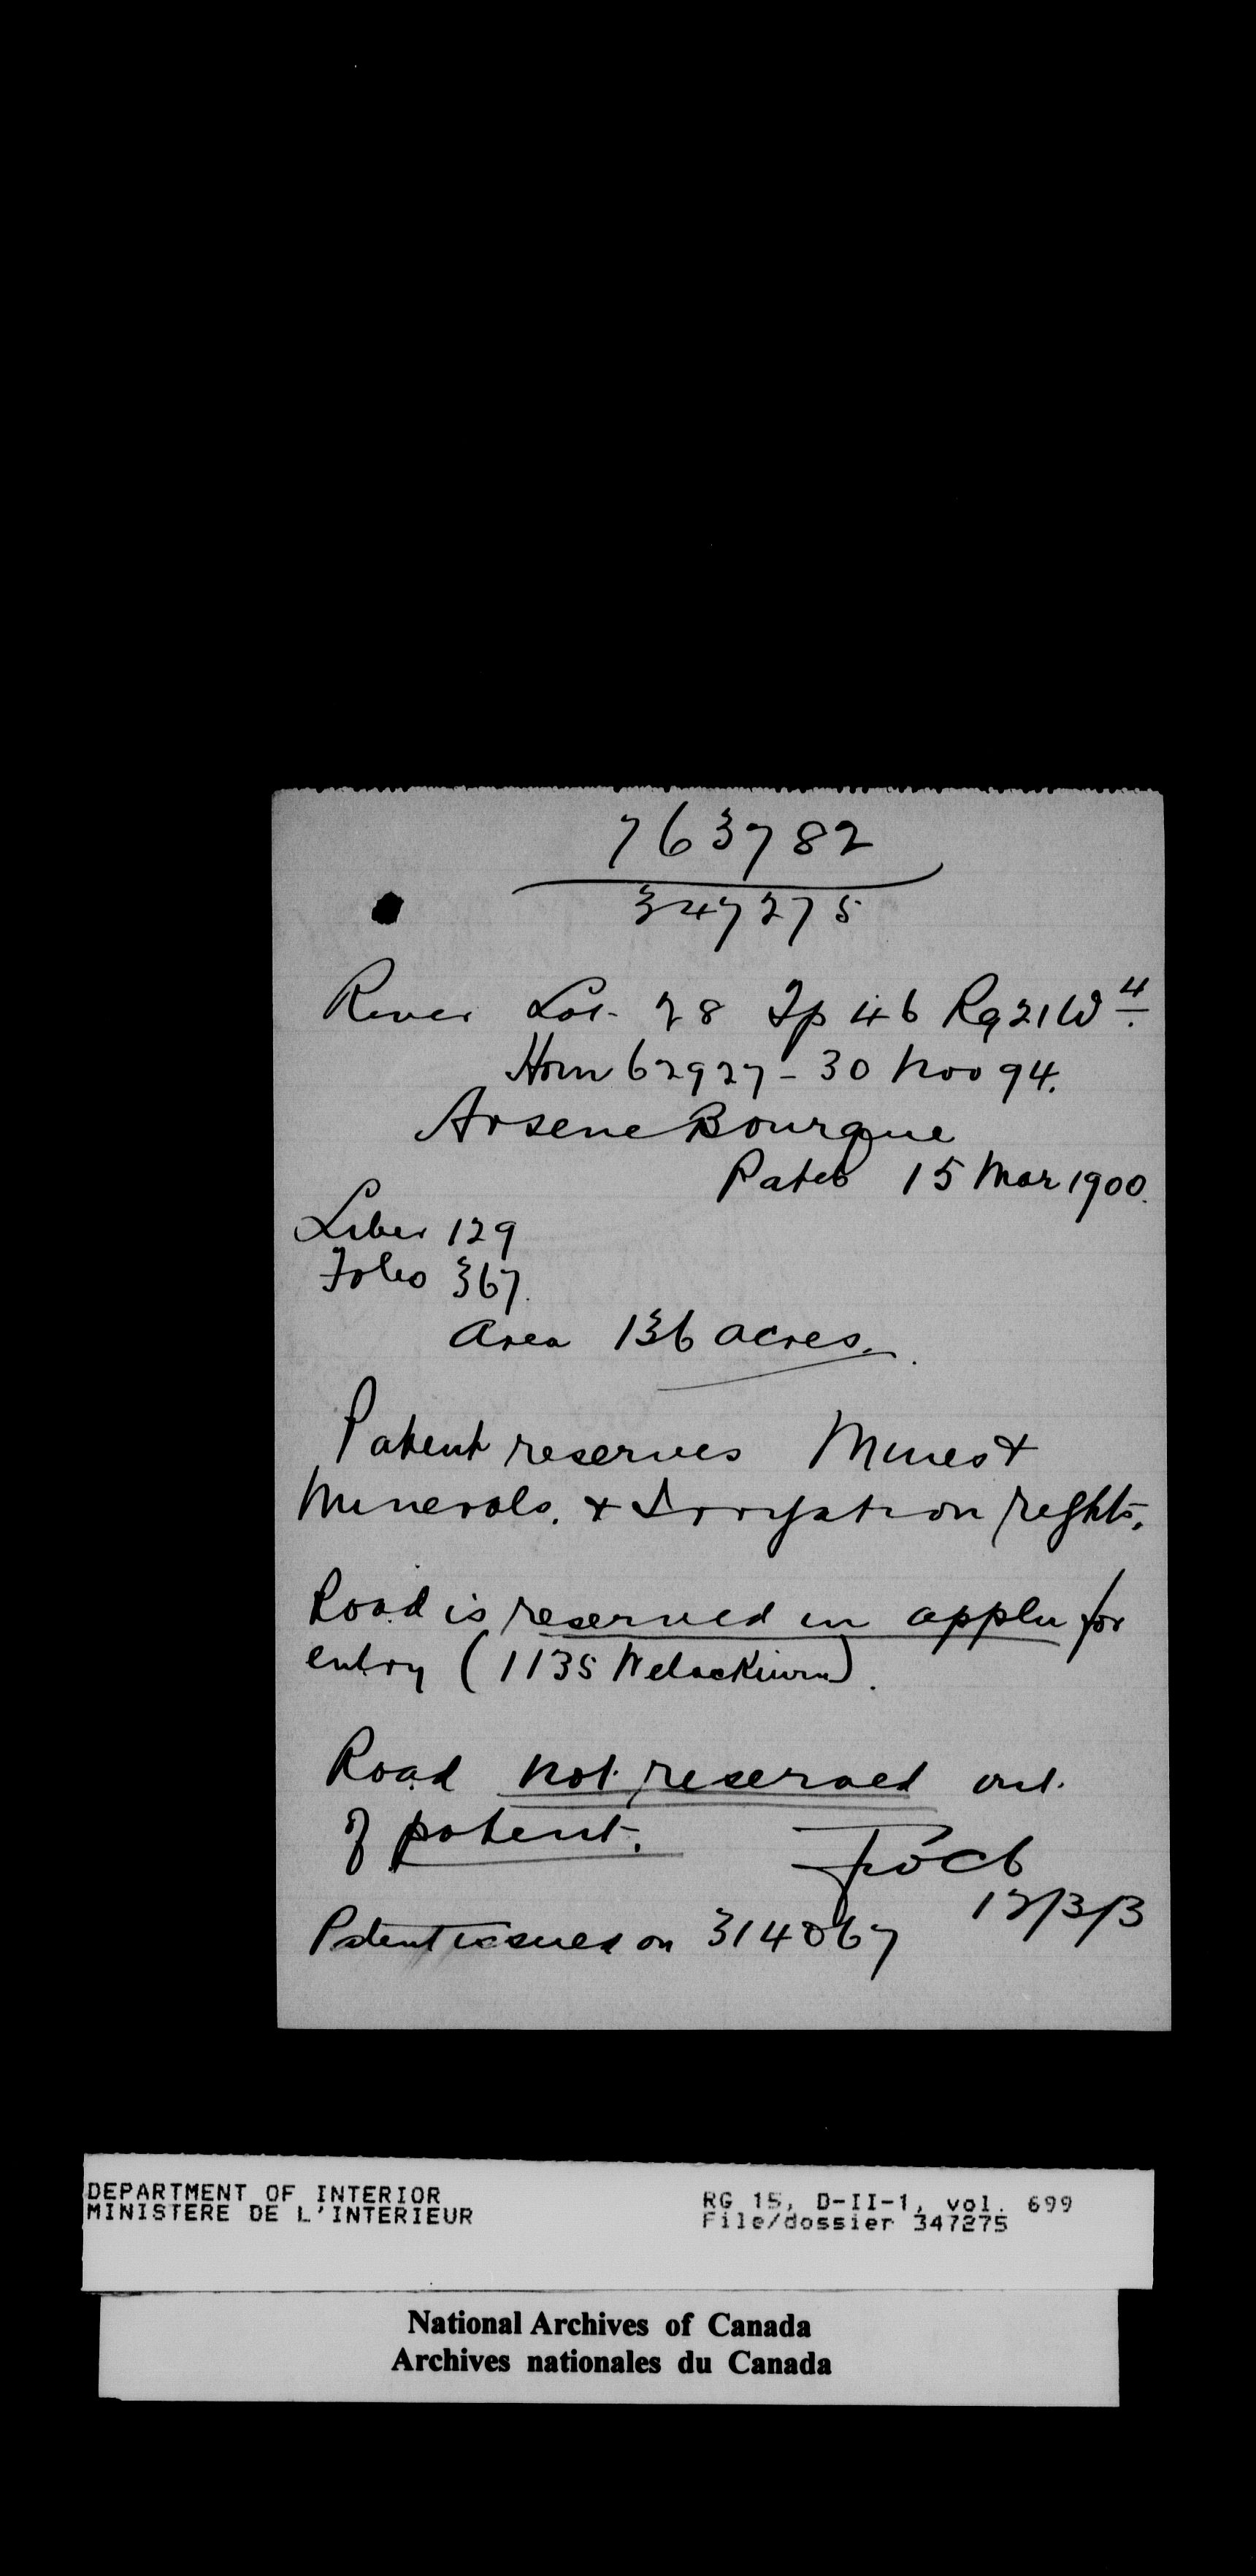 763782
347275
River Lot 28 Tp 46 Rg 21 W 4.
Hom 62927 - 30 Nov 94.
Arsene Bourque
Pated 15 Mar 1900.
Liber 129
Folio 367.
Area 136 acres.
Patent reserves Mines &
Minerals. & Irrigation rights.
Road is reserved in appln for
entry (1135 Wetaskiwin).
Road not reserved out
of patent.
12/3/3
Patent issued on 314867
DEPARTMENT OF INTERIOR
MINISTERE DE L'INTERIEUR
RG 15, D-II-1, vol. 699
File/dossier 347275
National Archives of Canada
Archives nationales du Canada